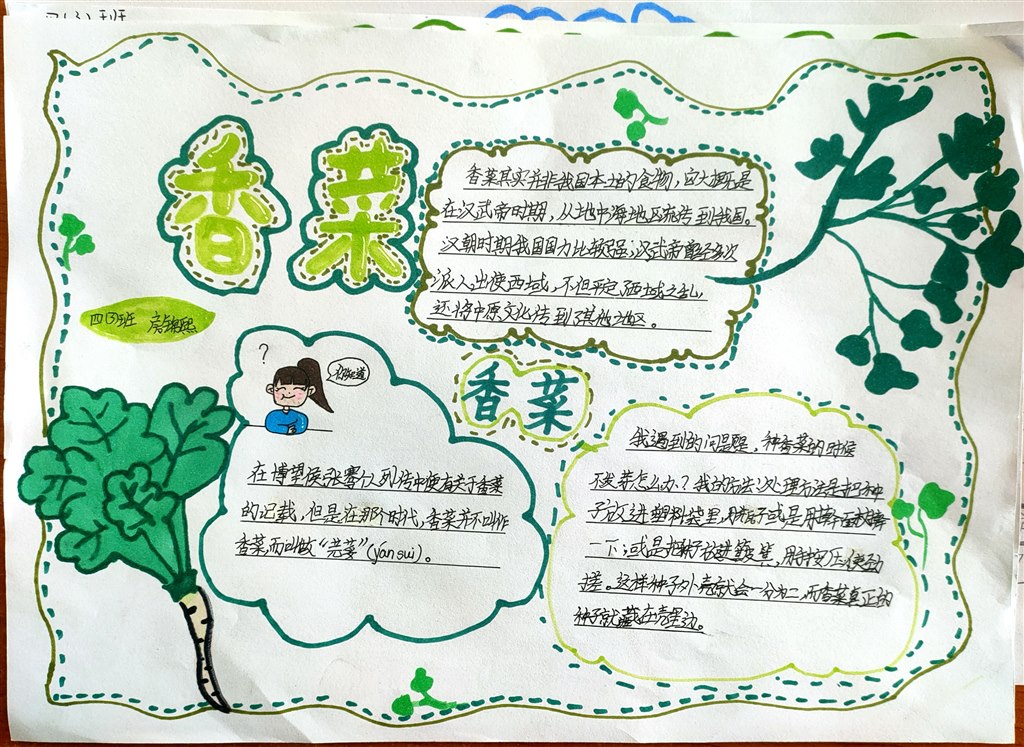 四(3)班
香菜
四(3)班
香菜其实并非我国本土的食物，它大概是
在汉武帝时期，从地中海地区流传到我国。
汉朝时期我国国力比较强；汉武帝曾经多次
派人出使西域，不但平定西域之乱
还将中原文化传到其他地区。
?
你知道
香菜
在博望侯张骞个人列传中便有关于香菜
的记载，但是在那个时代，香菜并不叫作
香菜，而叫做“芫荽”(yán sui)。
我遇到的问是题，种香菜的时候
不发芽怎么办？我的方法:处理方法是把种
子放进塑料袋里，用
一下；或是把种子放进
搓。这样种子外壳就会一分为二，而香菜真正的
种子就藏在壳里边。